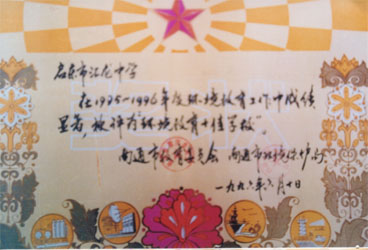 启东市汇龙中学
在1995—1996年度环境教育工作中成绩
显著,被评为环境教育十佳学校"。
南通市教育委员会 南通市环境保护局
一九九六年六月十日